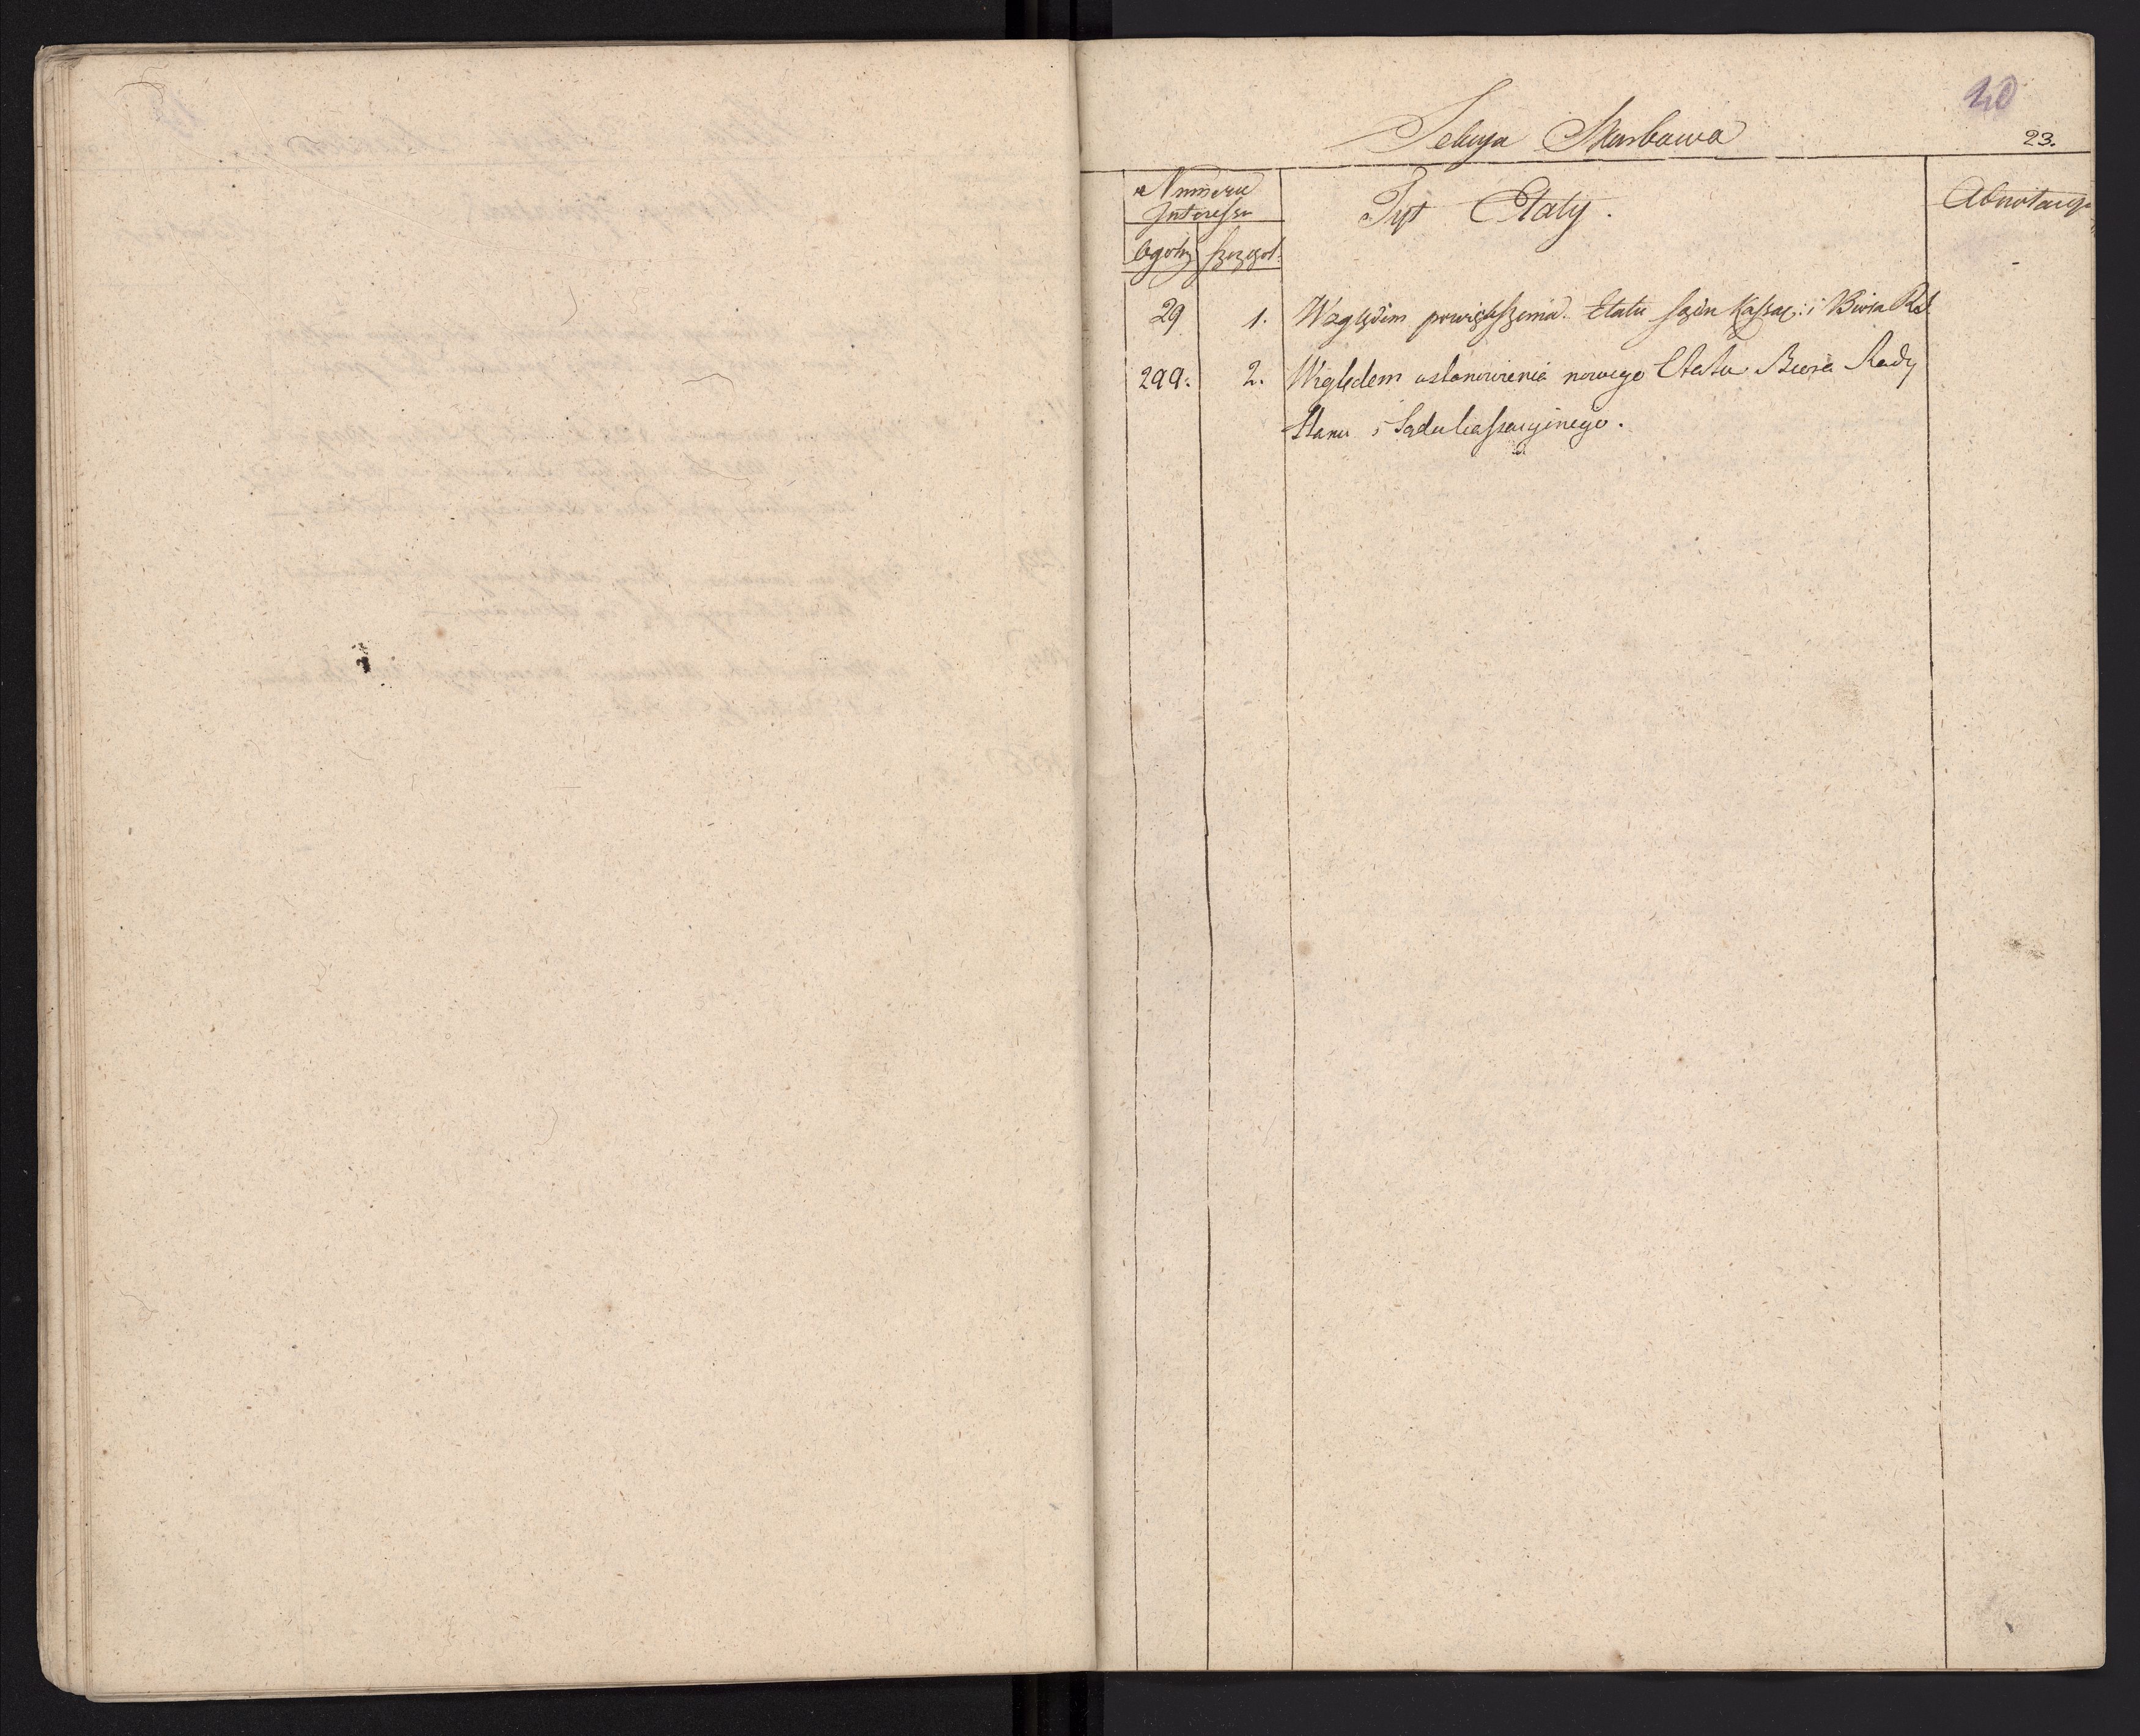 20
Sekcya Skarbowa
23.
Numeru
Interessu
ogoln
szczegol:
Tyt Etaty.
Adnotacya
29 1. Względem powiększenia Etatu Sądu Kassac: i Biora Rad
299. 2. Względem ustanowienia nowego Etatu Biora Rady
Stanu i Sądu Kassacyinego.